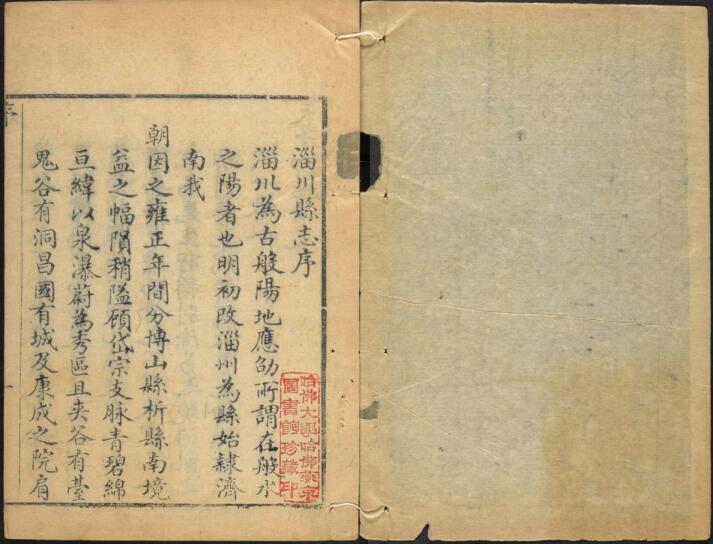 淄川縣志序
淄川為古般陽地應劭所謂在般水
之陽者也明初改淄州為縣始隷濟
南我
朝因之雍正年間分博山縣析縣南境
益之幅隕稍隘顧岱宗支脉青碧綿
亘緯以泉瀑蔚為秀區且夾谷有臺
鬼谷有洞昌國有城及康成之院肩
序
一
哈佛大學哈佛燕京
圖書館珍藏印